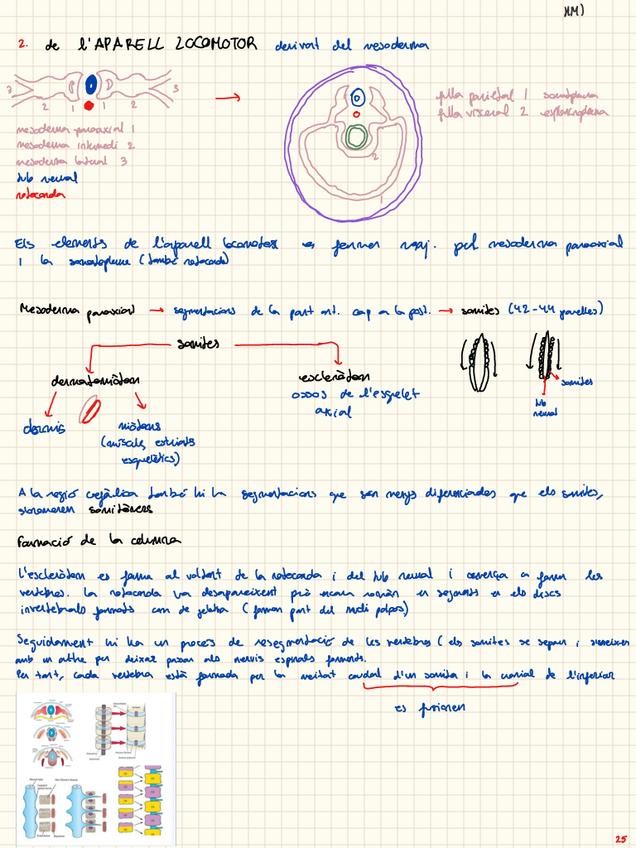 2. de l'APARELL LOCOMOTOR derivat del mesoderma
3 2 1 1 2 3
fulla parietal 1 somatopleura
fulla visceral 2 esplancnopleura
2
1
mesoderma paraaxial 1
mesoderma intermedi 2
mesoderma lateral 3
tub neural
notocorda
Els elements de l'aparell locomotor es formen maj. pel mesoderma paraaxial
i la somatopleura (també notocorda)
Mesoderma paraaxial → segmentacions de la part ant. cap a la post. → somites (42-44 parelles)
somites
dermatomiòtom
escleròtom
ossos de l'esquelet
axial
somites
tub
neural
dermis
miòtoms
(músculs estriats
esquelètics)
A la regió cefàlica també hi ha segmentacions que son menys diferenciades que els somites,
s'anomenen somitòmers
Formació de la columna
L'escleròtom es forma al voltant de la notocorda i del tub neural i comença a formar les
vertebres. La notocorda va desapareixent però encara romàn en segments en els discs
invertebrals formats com de gelatina (formen part del nucli polpos)
Seguidament hi ha un procés de resegmentació de les vertebres (els somites se separen i s'uneixen
amb un altre per deixar passar als nervis espinals formants.
Per tant, cada vertebra està formada per la meitat caudal d'un somita i la cranial de l'inferior
es fusionen
25